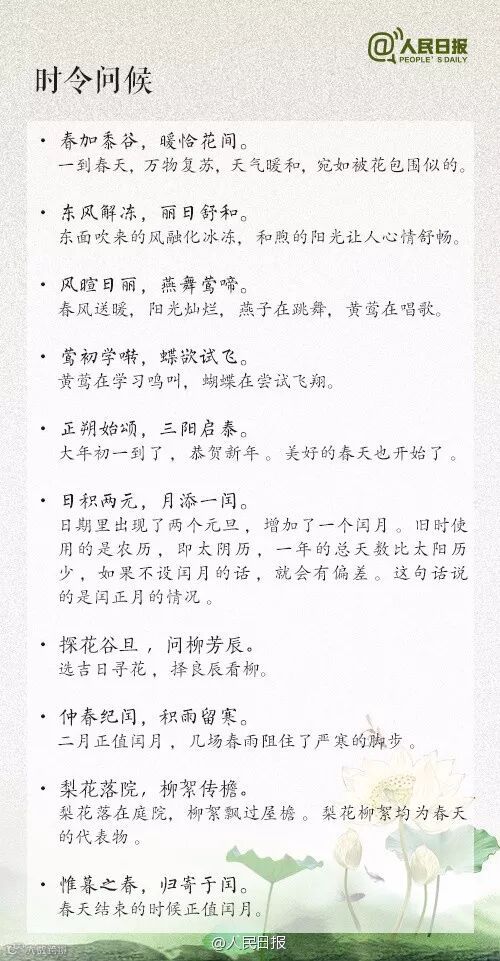 @人民日报
PEOPLE'S DAILY
时令问候
· 春加黍谷，暖恰花间。
一到春天，万物复苏，天气暖和，宛如被花包围似的。
· 东风解冻，丽日舒和。
东面吹来的风融化冰冻，和煦的阳光让人心情舒畅。
· 风暄日丽，燕舞莺啼。
春风送暖，阳光灿烂，燕子在跳舞，黄莺在唱歌。
· 莺初学啭，蝶欲试飞。
黄莺在学习鸣叫，蝴蝶在尝试飞翔。
· 正朔始颂，三阳启泰。
大年初一到了，恭贺新年。美好的春天也开始了。
· 日积两元，月添一闰。
日期里出现了两个元旦，增加了一个闰月。旧时使
用的是农历，即太阴历，一年的总天数比太阳历
少，如果不设闰月的话，就会有偏差。这句话说
的是闰正月的情况。
· 探花谷旦，问柳芳辰。
选吉日寻花，择良辰看柳。
· 仲春纪闰，积雨留寒。
二月正值闰月，几场春雨阻住了严寒的脚步。
· 梨花落院，柳絮传檐。
梨花落在庭院，柳絮飘过屋檐。梨花柳絮均为春天
的代表物。
· 惟暮之春，归寄于闰。
春天结束的时候正值闰月。
@人民日报